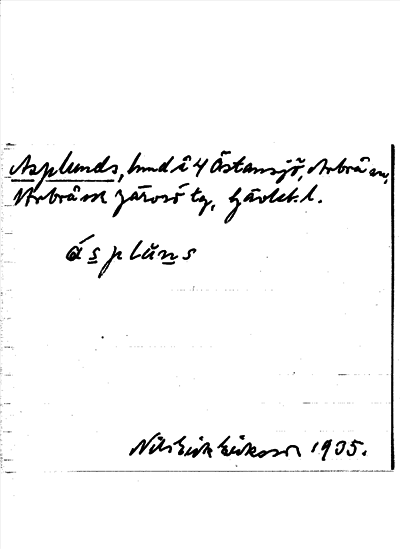 Asplunds, hmd i 4 Östansjö, Arbrå sn,
Arbrå och Järvsö tg, Gävleb. l.
áspluns
Nils Erik Eriksson 1935.